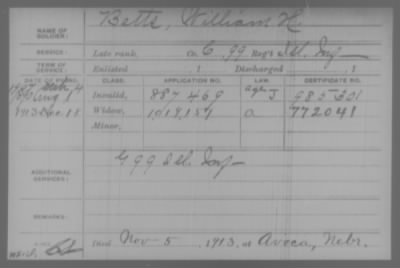 NAME OF SOLDIER: Betts, William H.
SERVICE: Late rank, Co. G, 99 Reg't Ill. Inf
TERM OF SERVICE: Enlisted 1 Discharged 1
DATE OF FILING. CLASS. APPLICATION NO. LAW. CERTIFICATE NO.
Invalid, 887469
Widow, 1018154 a 772048
Minor,
ADDITIONAL SERVICES: G 99 Ill. Inf
REMARKS:
Died Nov 5, 1913, at Avoca, Nebr.